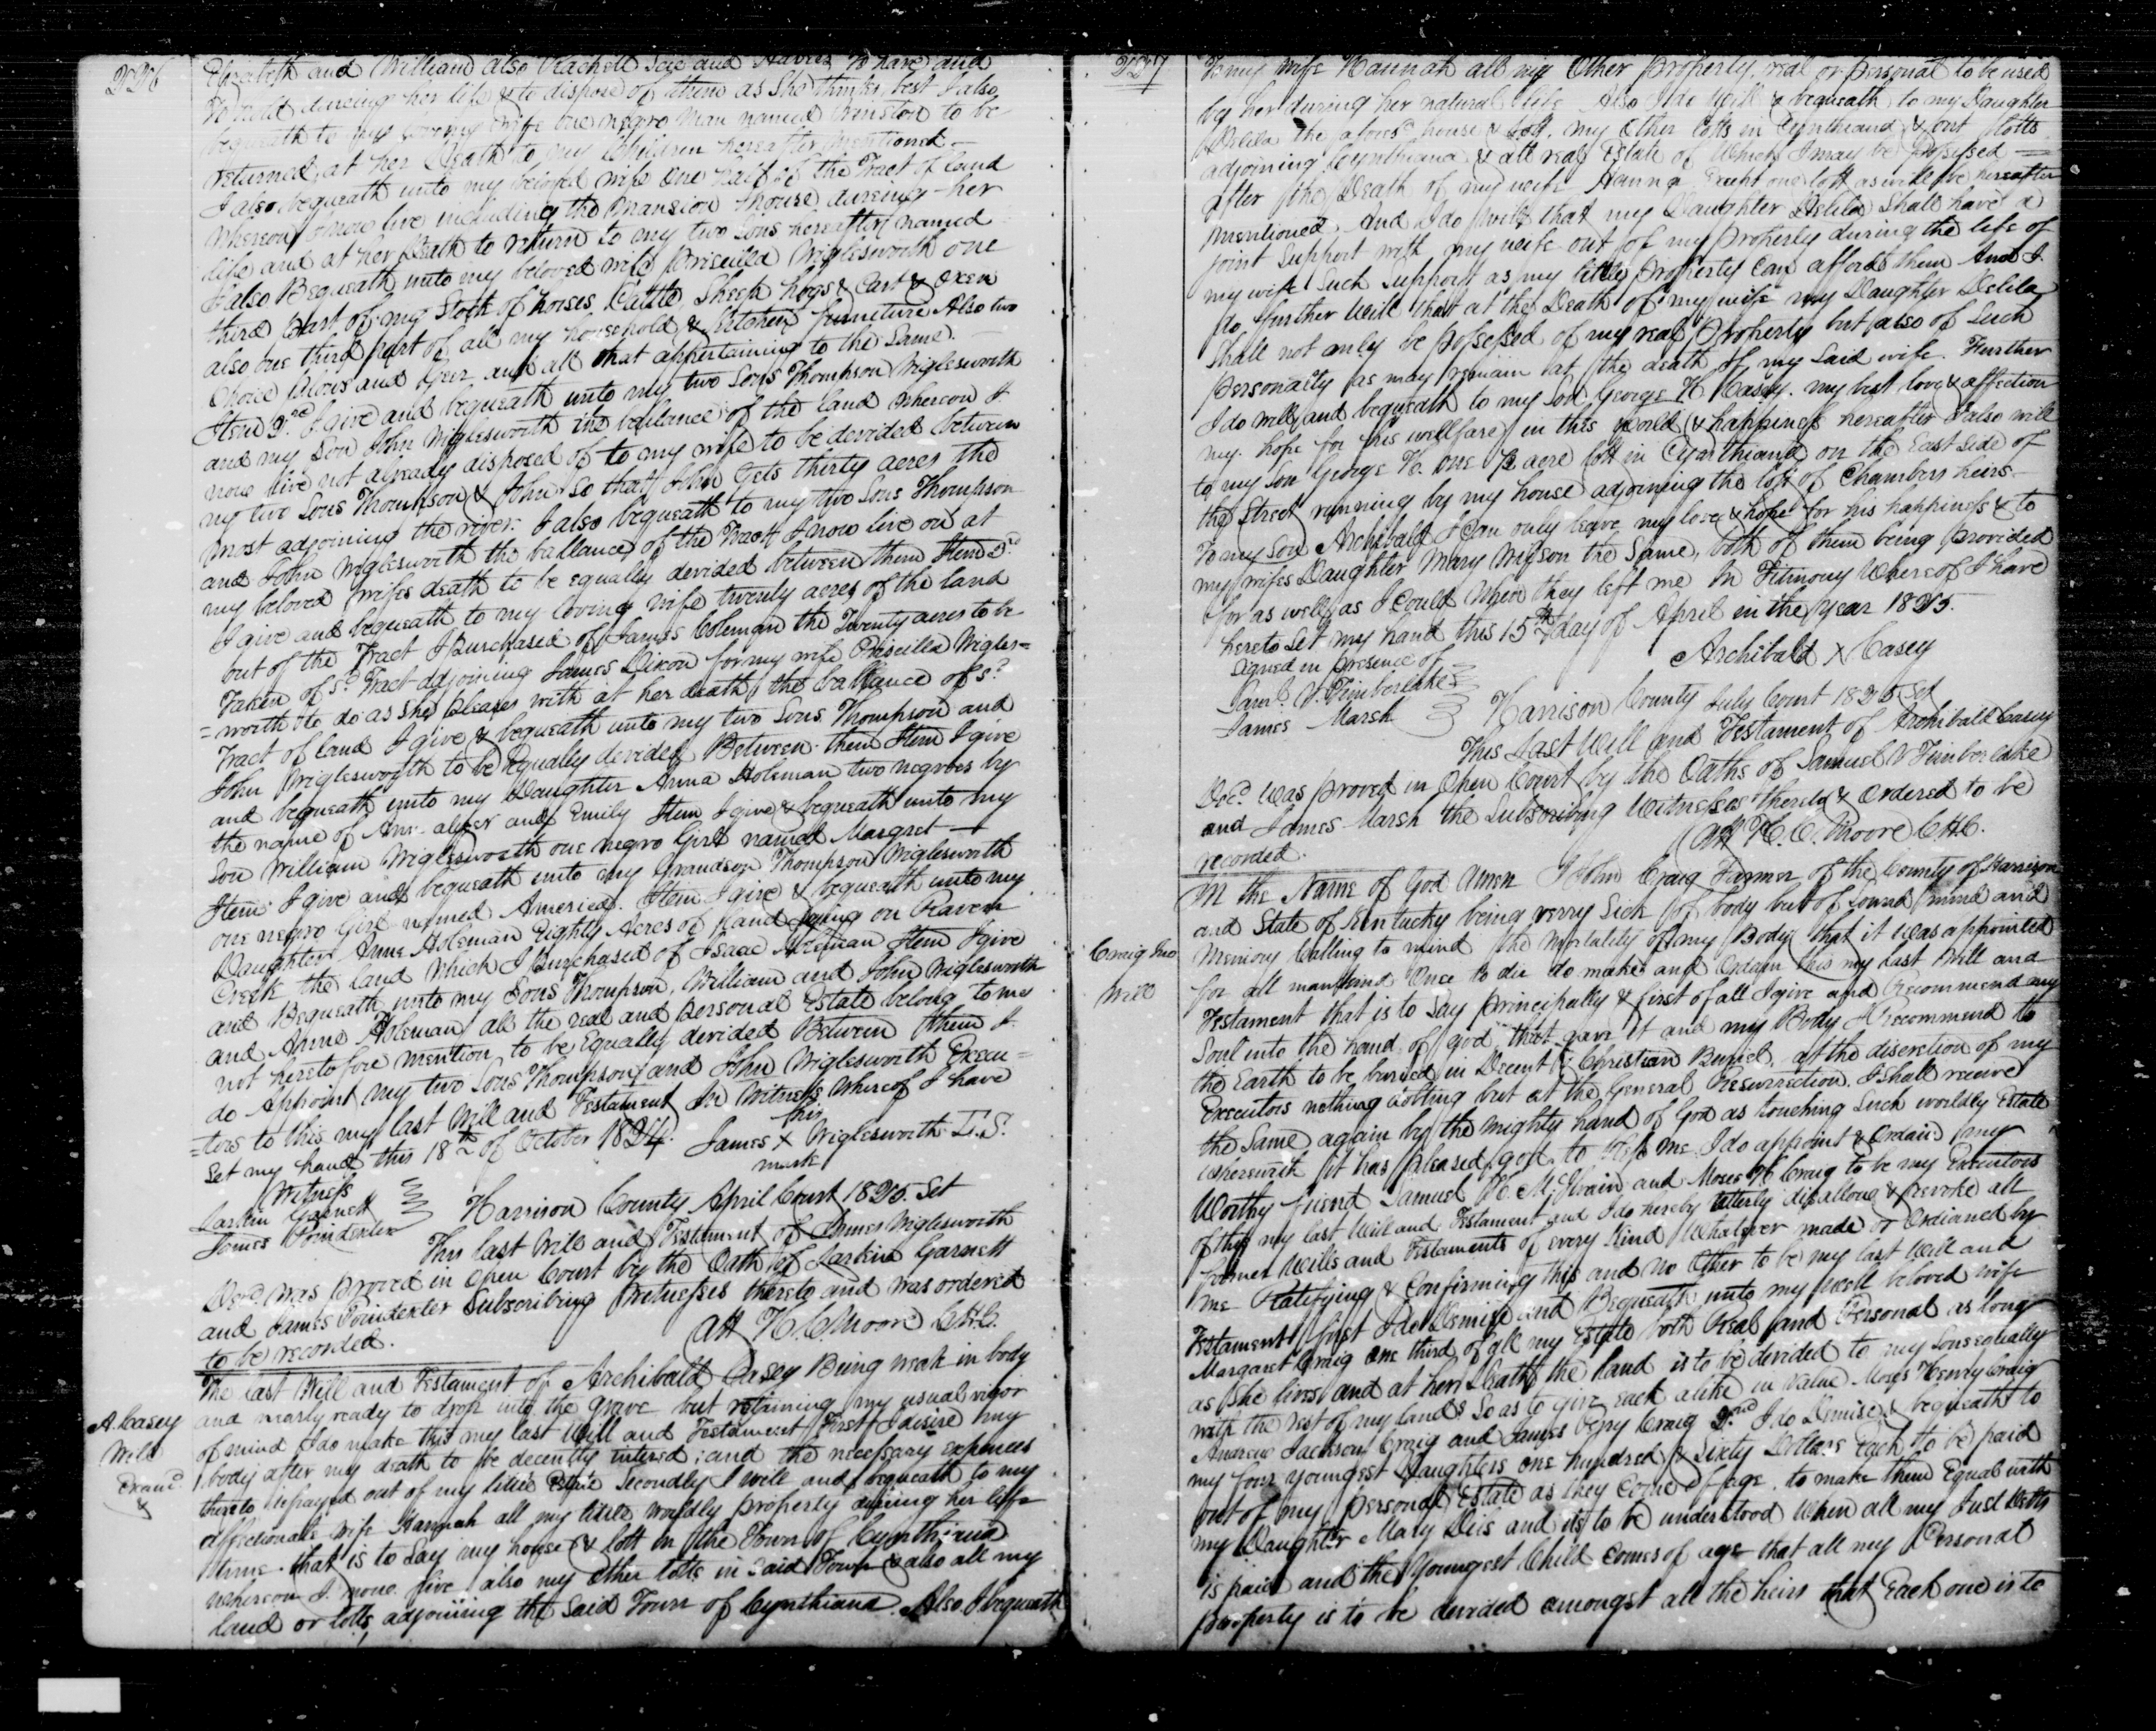 226
Elizabeth and William also Rachell and to have and
to hold dureing her life & to dispose of them as She thinks best I also
bequeath to my loving wife one negro Man named Winston to be
returned at her Death to my Children hereafter mentioned
I also bequeath unto my beloved wife One half of the Tract of land
Whereon I now live including the Mansion house dureing her
life and at her Death to return to my two Sons hereafter named
I also Bequeath unto my beloved wife Priscilla Wiglesworth one
third part of my Stock of horses Cattle Sheep hogs & Cart & Oxen
also one third part of all my household & Kitchen furniture Also two
Choice plows and Geer and all that appertaining to the Same
Item 2nd I give and bequeath unto my two Sons Thompson Wiglesworth
and my Son John Wiglesworth the ballance of the land Whereon I
now live not already disposed of to my wife to be devided between
my two Sons Thompson & John So that John Gets thirty acres the
most adjoining the river. I also bequeath to my two Sons Thompson
and John Wiglesworth the ballance of the Tract I now live on at
my beloved wifes death to be equally devided between them Item 3rd
I give and bequeath to my loving wife twenty acres of the land
out of the Tract I Purchased of James Coleman the Twenty acres to be
Taken of sd Tract adjoining James Dixon for my wife Priscilla Wigles=
=worth to do as She pleases with at her death the ballance of sd
Tract of land I give & bequeath unto my two Sons Thompson and
John Wiglesworth to be Equally devided Between them Item I give
and bequeath unto my Daughter Anna Holeman two negroes by
the name of and Emily Item I give & bequeath unto my
Son William Wiglesworth one negro Girl named Margret
Item I give and bequeath unto my Grandson Thompson Wiglesworth
one negro Girl named America. Item I give & bequeath unto my
Daughter Anne Holeman Eighty Acres of land lying on Raven
Creek the land which I Purchased of Isaac Item I give
and Bequeath unto my Sons Thompson, William and John Wiglesworth
and Anne Holeman all the real and personal Estate belong to me
not heretofore mention to be Equally devided Between them I
do Appoint my two Sons Thompson and John Wiglesworth Execu=
=tors to this my last Will and Testament In Witness Whereof I have
Set my hand this 18th of October 1824.
his
James X Wiglesworth L.S.
mark
Witness
Larkin Garnett
James Poindexter
Harrison County April Court 1825. Set
This last Will and Testament of James Wiglesworth
Decd. was proved in open Court by the Oath of Larkin Garnett
and James Poindexter Subscribing Witnesses thereto and was ordered
to be recorded.
Att H. C. Moore C.H.C.
A. Casey
Will
Examd
&
The last Will and Testament of Archibald Casey Being weak in body
and nearly ready to drop into the grave but retaining my usual vigor
of mind I do make this my last Will and Testament First I desire my
body after my death to be decently intered; and the necessary expences
thereto defrayed out of my little Estate Secondly I will and bequeath to my
affectionate wife Hannah all my little worldly property dureing her life
time. that is to Say my house & lott in the Town of Cynthiana
whereon I now live also my other lotts in Said Town & also all my
land or lotts, adjoining the Said Town of Cynthiana. Also I bequeath
227
To my wife Hannah all my Other property, real or personal to be used
by her during her natural life Also I do will & bequeath to my Daughter
Delila the aforesd house & lott, my Other lotts in Cynthiana & out lotts
adjoining Cynthiana & all real Estate of Which I may be possessed
after the Death of my wife Hanna Except one lott as will be hereafter
mentioned. And I do will that my Daughter Delila Shall have a
joint Support with my wife out of my property during the life of
my wife Such Support as my little property can afford them And I
do further Will that at the Death of my wife my Daughter Delila
Shall not only be possessed of my real Property but also of Such
personalty as may remain at the death of my Said wife. Further
I do will and bequeath to my Son George K Casey. my best love & affection
my hope for his wellfare in this world & happiness hereafter I also will
to my Son George K. one ½ acre lott in Cynthiana on the East Side of
the Street running by my house adjoining the lott of Chambers heirs
To my Son Archibald I can only leave my love & hope for his happiness & to
my wifes Daughter Mary the Same, both of them being provided
for as well as I could When they left me In Titmony Whereof I have
hereto Set my hand this 15th day of April in the year 1825.
Archibald X Casey
Signed in presence of
Saml. V. Timberlake
James Marsh
Harrison County July Court 1825 Set
This Last Will and Testament of Archibald Casey
Decd. Was proved in Open Court by the Oaths of Samuel V Timberlake
and James Marsh the Subscribing Witnesses thereto & Ordered to be
recorded.
Att H. C. Moore C.H.C.
Craig Jno
Will
In the Name of God Amen I John Craig Farmer of the County of Harrison
and State of Kentucky being verry Sick of body but of Sound mind and
Memory Calling to mind the Mortality of my Body that it was appointed
for all mankind Once to die do make and Ordain this my last Will and
Testament that is to Say principally & first of all I give and Recommend my
Soul into the hand of god that gave it and my Body I Recommend to
the Earth to be buried in Decent Christian Buriel, at the discretion of my
Executors nothing doubting but at the General Resurrection I Shall receive
the Same again by the mighty hand of God as touching Such worldly Estate
Wherewith it has pleased god to Me I do appoint & Ordain my
Worthy friend Samuel and Moses H Craig to be my Executors
of this my last Will and Testament and I do hereby utterly disallow & revoke all
former Wills and Testaments of every Kind Whatever made or Ordianed by
me Ratifying & Confirming this and no Other to be my last Will and
Testament first I do Demise and Bequeath unto my well beloved wife
Margaret Craig one third of all my Estate both Real and Personal as long
as She lives and at her Death the land is to be devided to my Sons equally
with the rest of my lands So as to give each alike in Value Moses Henry Craig
Andrew Jackson Craig and James Craig 2nd I do Demise & bequeath to
my four youngest Daughters one hundred & Sixty Dollars Each to be paid
out of my personal Estate as they Come of age. to make them Equal with
my Daughter Mary and its to be understood When all my Just Debts
is paid and the Youngest Child comes of age that all my Personal
property is to be devided amongst all the heirs that Each one is to